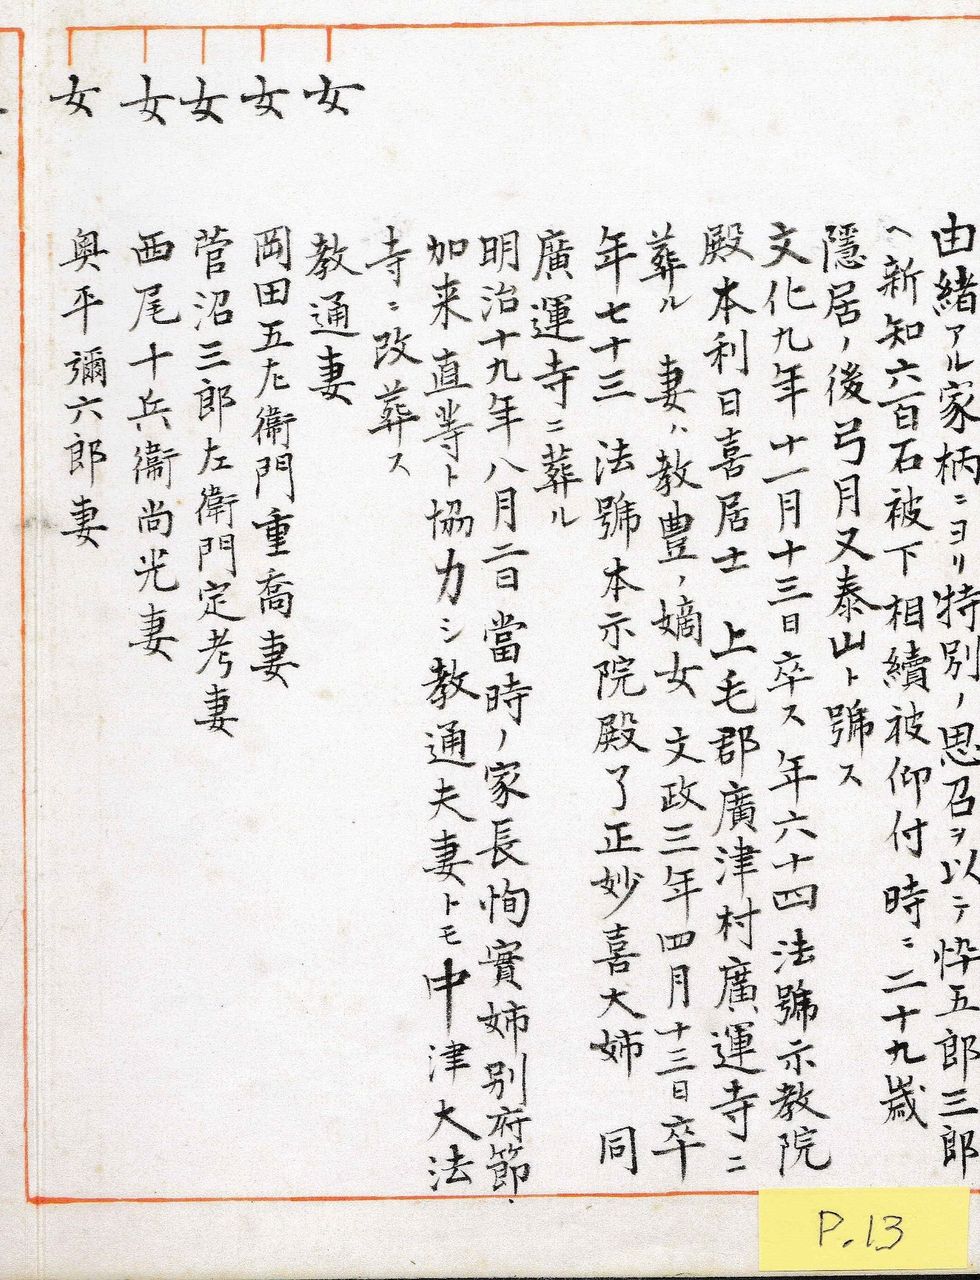 由緒アル家柄ニヨリ特別ノ思召ヲ以テ悴五郎三郎
ヘ新知六百石被下相續被仰付時ニ二十九歳
隱居ノ後弓月又泰山ト號ス
文化九年十一月十三日卒ス年六十四法號示教院
殿本利日喜居士 上毛郡廣津村廣運寺ニ
葬ル 妻ハ教豊ノ嫡女 文政三年四月十三日卒
年七十三 法號本示院殿了正妙喜大姉 同
廣運寺ニ葬ル
明治十九年八月二日當時ノ家長恂實姉別府節、
加来直等ト協力シ教通夫妻トモ中津大法
寺ニ改葬ス
女 教通妻
女 岡田五左衞門重喬妻
女 菅沼三郎左衛門定考妻
女 西尾十兵衞尚光妻
女 奥平彌六郎妻
P.13